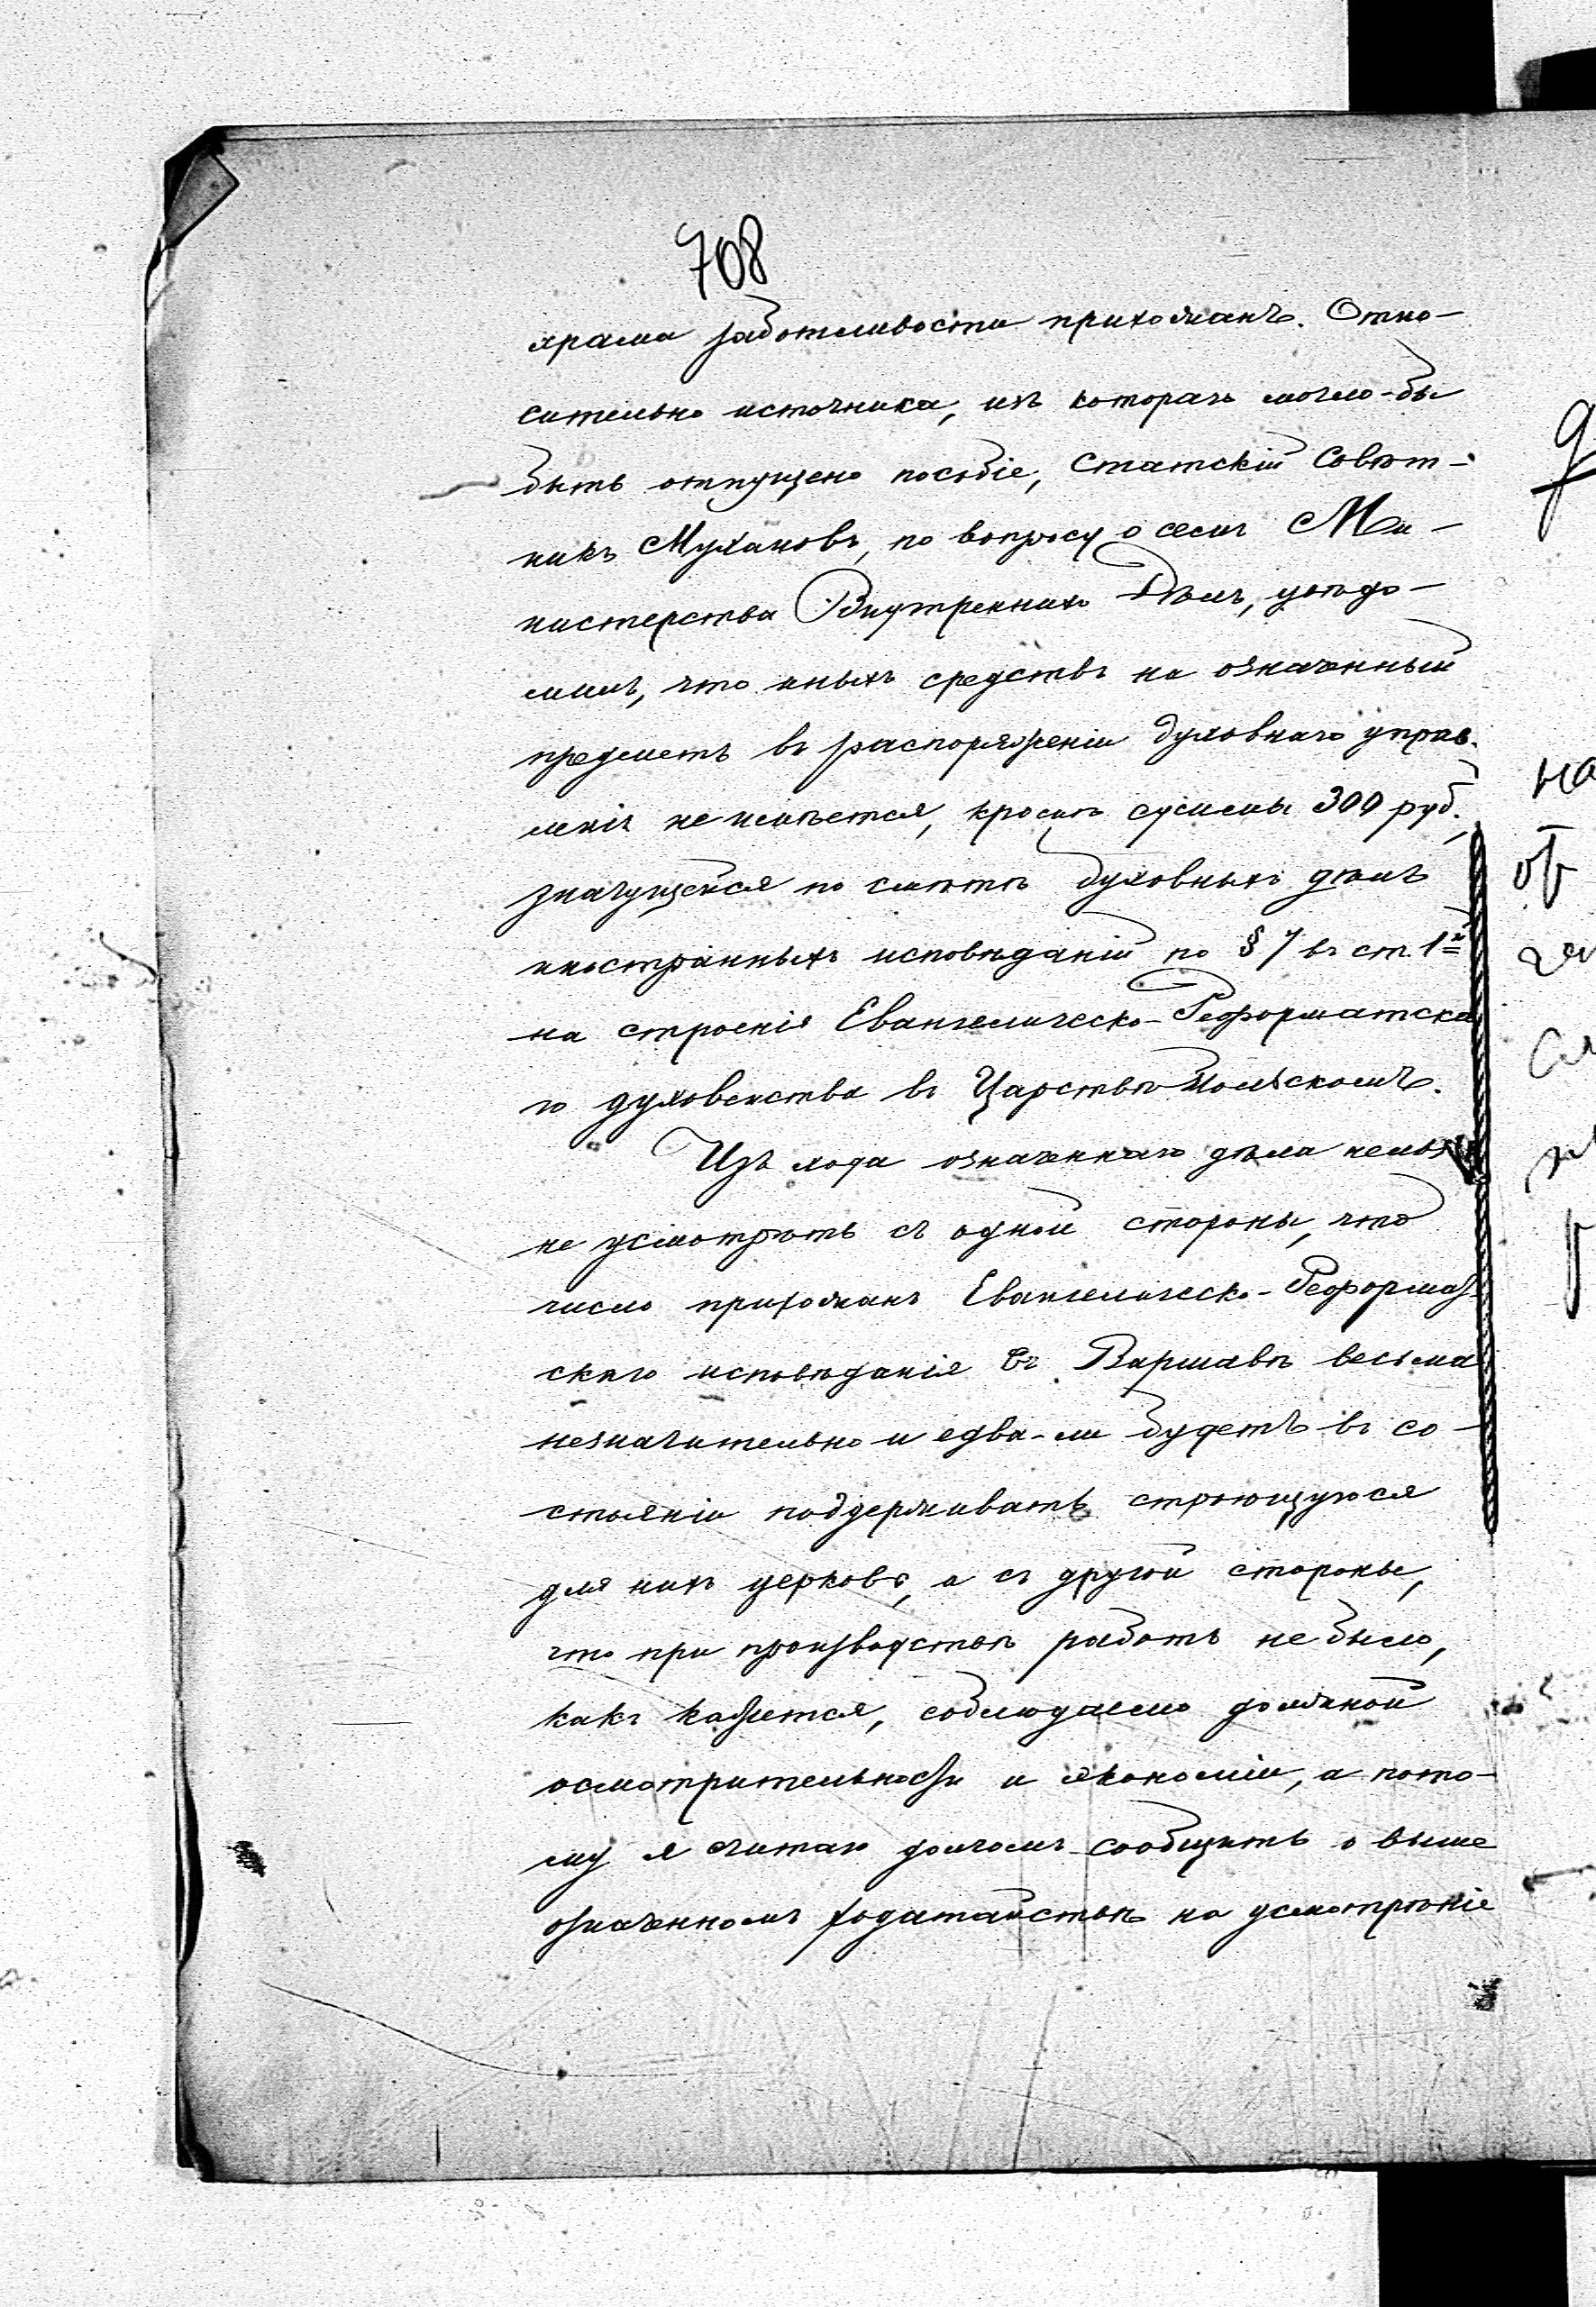 708
храма заботливости прихожанъ. Отно-
сительно источника, изъ котораго могло-бы
быть отпущено пособіе, Статскій Совѣт-
никъ Мухановъ, по вопросу о семъ Ми-
нистерства Внутреннихъ Дѣлъ, увѣдо-
милъ, что иныхъ средствъ на означенный
предметъ въ распоряженіи духовнаго управ-
ленія не имѣется, кромѣ суммы 300 руб.,
значущейся по смѣтѣ духовныхъ дѣлъ
иностранныхъ исповѣданій по § 7 въ ст. 1й
на строенія Евангелическо-Реформатска
го духовенства въ Царствѣ Польскомъ.
Изъ хода означеннаго дѣла нельзя
не усмотрѣть съ одной стороны, что
число прихожанъ Евангелическо-Реформат-
скаго исповѣданія въ Варшавѣ весьма
незначительно и едва-ли будетъ въ со-
стояніи поддерживать строющуюся
для нихъ церковь, а съ другой стороны,
что при производствѣ работъ не было,
какъ кажется, соблюдаемо должной
осмотрительности и экономіи, а пото-
му я считаю долгомъ сообщить о выше
означенномъ ходатайствѣ на усмотрѣніе